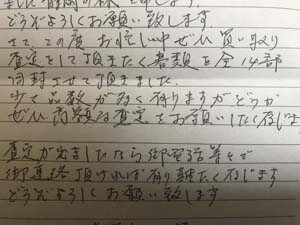 どうぞよろしくお願い致します。
さて、この度お忙しい中ぜひ買い取り
査定をして頂きたく書類を全14部
同封させて頂きました。
少々品数が多く有りますがどうか
ぜひ高額な査定をお願いしたく存じます
査定が出ましたなら御電話等で
御連絡頂ければ有り難たく存じます
どうぞよろしくお願い致します